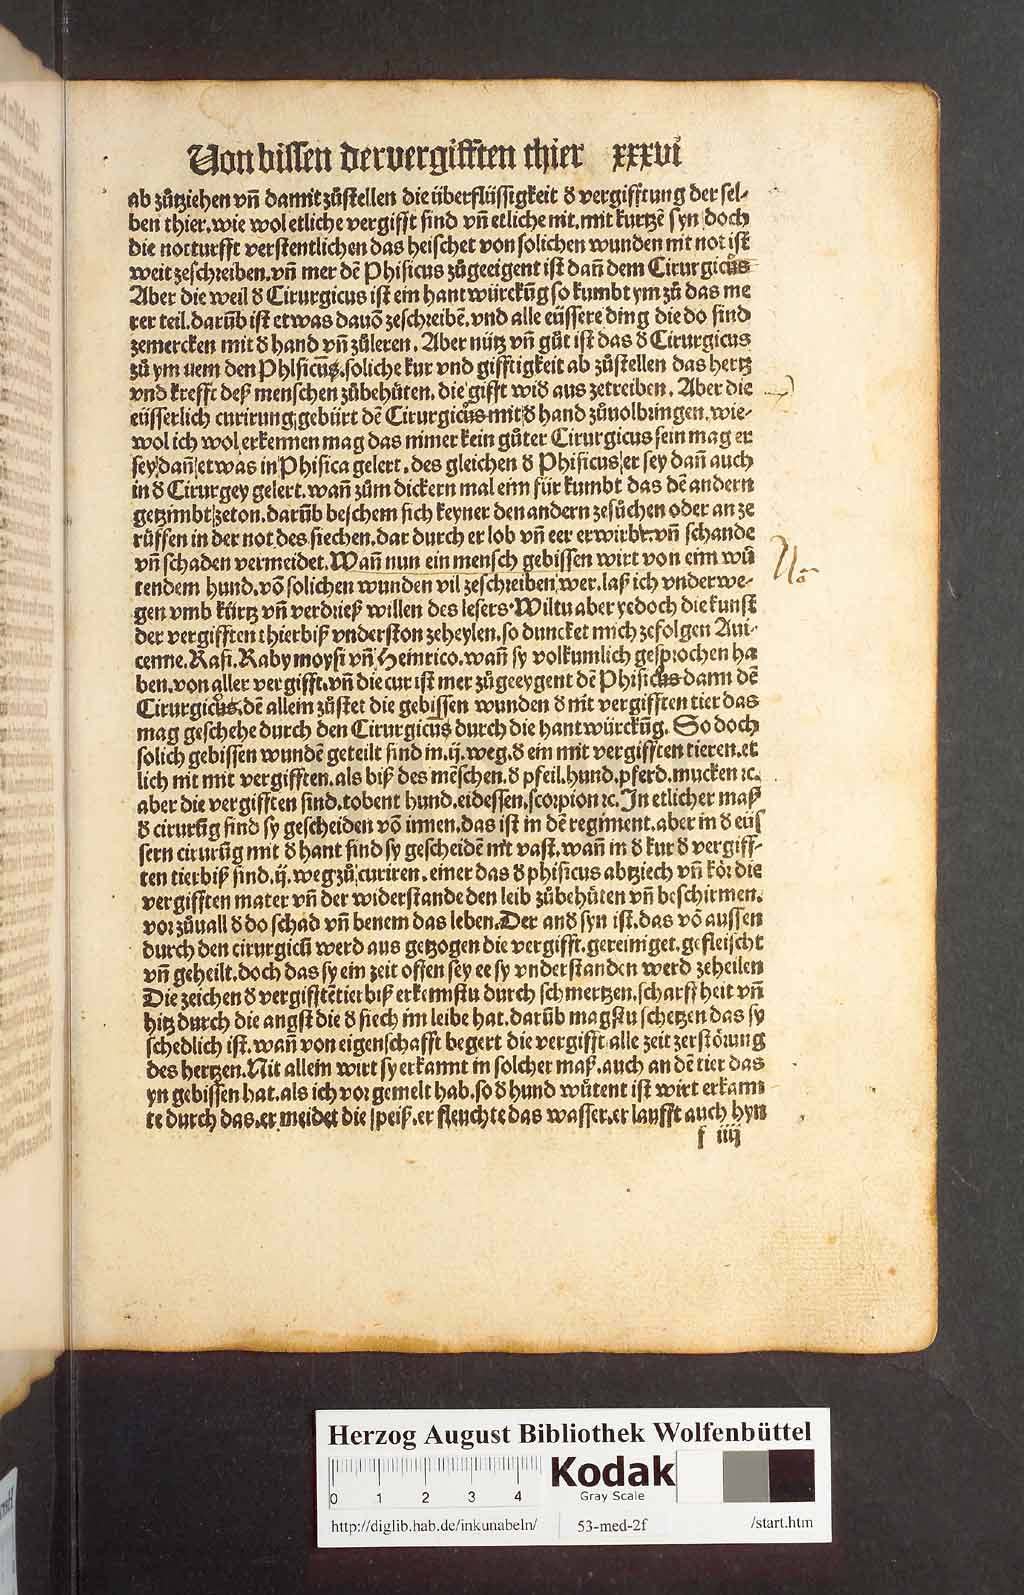 Von bissen der vergifften thier xxxvi
ab zůtziehen vñ damit zůstellen die überflüssigkeit d vergifftung der sel-
ben thier. wie wol etliche vergifft sind vñ etliche nit. mit kurtzē syn doch
die notturfft verstentlichen das heischet von solichen wunden nit not ist
weit zeschreiben. vñ mer dē Phisicus zůgeeigent ist dañ dem Cirurgicus
Aber die weil d Cirurgicus ist ein hant würckūg so kumbt ym zů das me
rer teil. darūb ist etwas dauō zeschreibē. vnd alle eüssere ding die do sind
zemercken mit d hand vñ zůleren. Aber nütz vñ gůt ist das d Cirurgicus
zů ym nem den Phisicūs. soliche kur vnd gifftigkeit ab zůstellen das hertz
vnd krefft deß menschen zůbehüten. die gifft wid aus zetreiben. Aber die
eüsserlich curirung gebürt dē Cirurgicus mit d hand zůuolbringen. wie-
wol ich wol erkennen mag das nimer kein gůter Cirurgicus sein mag er
sey dañ etwas in Phisica gelert. des gleichen d Phisicus er sey dañ auch
in d Cirurgey gelert. wañ zům dickern mal eim für kumbt das dē andern
getzimbt zeton. darūb beschem sich keyner den andern zesůchen oder an ze
rüffen in der not des siechen. dar durch er lob vñ eer erwirbt. vñ schande
vñ schaden vermeidet. Wañ nun ein mensch gebissen wirt von eim wü
tendem hund. vō solichen wunden vil zeschreiben wer. laß ich vnderwe-
gen vmb kürtz vñ verdrieß willen des lesers. Wiltu aber yedoch die kunst
der vergifften thierbiß vnderston zeheylen. so duncket mich zefolgen Aui-
cenne. Rasi. Raby moysi vñ Heinrico. wañ sy volkumlich gesprochen ha
ben. von aller vergifft. vñ die cur ist mer zůgeeygent dē Phisicus dann dē
Cirurgicus. dē allein zůstet die gebissen wunden d nit vergifften tier das
mag geschehe durch den Cirurgicūs durch die hantwürckūg. So doch
solich gebissen wundē geteilt sind in .ij. weg. d ein mit vergifften tieren. et
lich nit mit vergifften. als biß des mēschen. d pfeil. hund. pferd. mucken ꝛc.
aber die vergifften sind. tobent hund. eidessen. scorpion ꝛc. In etlicher maß
d cirurūg sind sy gescheiden vō innen. das ist in dē regiment. aber in d eüs
sern cirurūg mit d hant sind sy gescheidē nit vast. wañ in d kur d vergiff-
ten tierbiß sind .ij. weg zů curiren. einer das d phisicus abtziech vñ kör die
vergifften mater vñ der widerstande den leib zůbehüten vñ beschirmen.
vor zůuall d do schad vñ benem das leben. Der and syn ist. das vō aussen
durch den cirurgicū werd aus getzogen die vergifft. gereiniget. gefleischt
vñ geheilt. doch das sy ein zeit offen sey ee sy vnderstanden werd zeheilen
Die zeichen d vergifftē tierbiß erkennstu durch schmertzen. scharffheit vñ
hitz durch die angst die d siech im leibe hat. darūb magstu schetzen das sy
schedlich ist. wañ von eigenschafft begert die vergifft alle zeit zerstörung
des hertzen. Nit allein wirt sy erkannt in solcher maß. auch an dē tier das
yn gebissen hat. als ich vor gemelt hab. so d hund wütent ist wirt erkann
te durch das. er meidet die speiß. er fleuchte das wasser. er laufft auch hyn
f iiij
Herzog August Bibliothek Wolfenbüttel
0 1 2 3 4
Kodak
Gray Scale
http://diglib.hab.de/inkunabeln/ 53-med-2f /start.htm